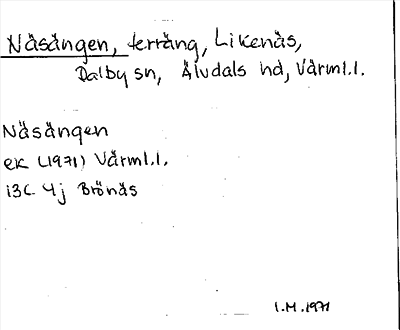 Näsängen, terräng, Likenäs,
Dalby sn, Älvdals hd, Värml.l.
Näsängen
ek (1971) Värml.l.
13C 4j Brönäs
I.M. 1971